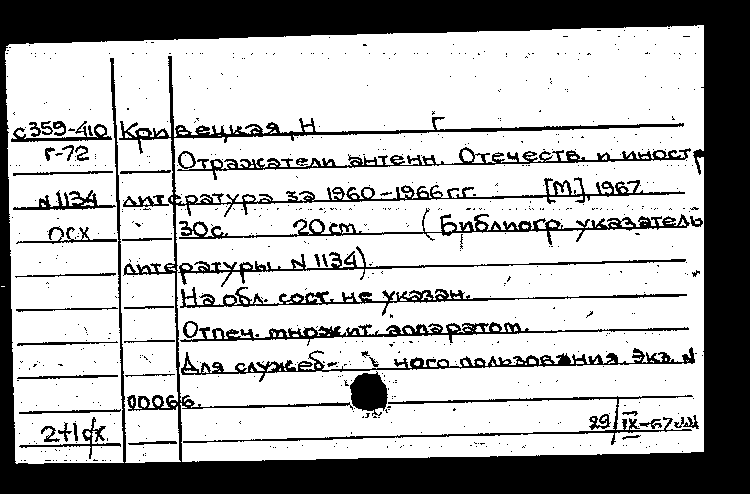 с359-410 Кривецкая, Н Г
г-72 Отражатели антенн. Отечеств. и иностр
N 1134 литература за 1960-1966 г.г. [М.], 1967
ОСХ 30с. 20см. (Библиогр. указатель
литературы. N 1134).
На обл. сост. не указан.
Отпеч. множит. аппаратом.
Для служеб- ного пользования. Экз. N
00066.
2+1 29/IX-67